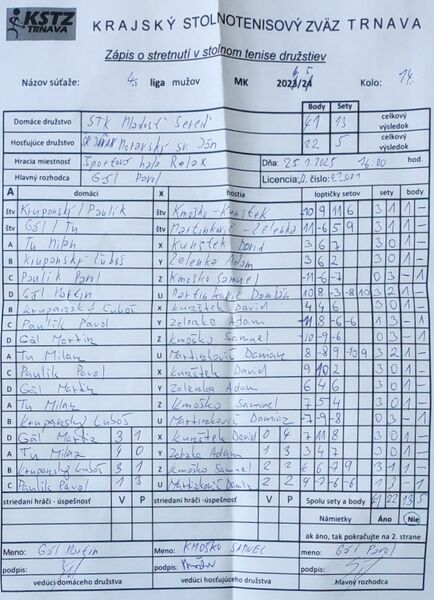 KSTZ
TRNAVA
KRAJSKÝ STOLNOTENISOVÝ ZVÄZ TRNAVA
Zápis o stretnutí v stolnom tenise družstiev
Názov súťaže: 4. liga mužov MK Kolo: 14.
Body Sety
Domáce družstvo STK Mladosť Sereď 41 13 celkový výsledok
Hosťujúce družstvo Moravský sv. Ján 22 5 celkový výsledok
Hracia miestnosť Športová hala Relax Dňa: 25.1.2025 16:00 hod.
Hlavný rozhodca Gál Pavol Licencia, číslo:
A domáci X hostia loptičky setov sety body
štv Krupanský/Paulík Kmoško-Kunštek 3 1 1 -
štv Gál/Tu Martinkovič-Zelenka 3 1 1 -
A Tu Milan X Kunštek David 3 6 7 3 0 1 -
B Krupanský Ľuboš Y Zelenka Adam 3 6 2 3 0 1 -
C Paulík Pavol Z Kmoško Samuel -11 -6 -7 0 3 - 1
D Gál Martin U Martinkovič Damián 10 8 -3 -8 10 3 2 1 -
B Krupanský Ľuboš X Kunštek David 4 4 6 3 0 1 -
C Paulík Pavol Y Zelenka Adam 1 3 - 1
D Gál Martin Z Kmoško Samuel -10 -9 -6 0 3 - 1
A Tu Milan U Martinkovič Damian 3 2 1 -
C Paulík Pavol X Kunštek David 9 10 2 3 0 1 -
D Gál Martin Y Zelenka Adam 6 4 6 3 0 1 -
A Tu Milan Z Kmoško Samuel 7 5 4 3 0 1 -
B Krupanský Ľuboš U Martinkovič Damian -7 -9 -8 0 3 - 1
D Gál Martin 3 1 X Kunštek David 0 4 7 11 8 3 0 1 -
A Tu Milan 4 0 Y Zelenka Adam 1 3 3 4 7 3 0 1 -
B Krupanský Ľuboš 3 1 Z Kmoško Samuel 2 2 3 1 1 -
C Paulík Pavol 1 3 U Martinkovič Damian 2 2 1 3 - 1
striedaní hráči - úspešnosť V P striedaní hráči - úspešnosť V P Spolu sety a body 41 22 13 5
Námietky Áno Nie
ak áno, tak pokračujte na 2. strane
Meno: Gál Martin Meno: KMOŠKO SAMUEL meno: Gál Pavol
podpis: podpis: podpis:
vedúci domáceho družstva vedúci hosťujúceho družstva hlavný rozhodca